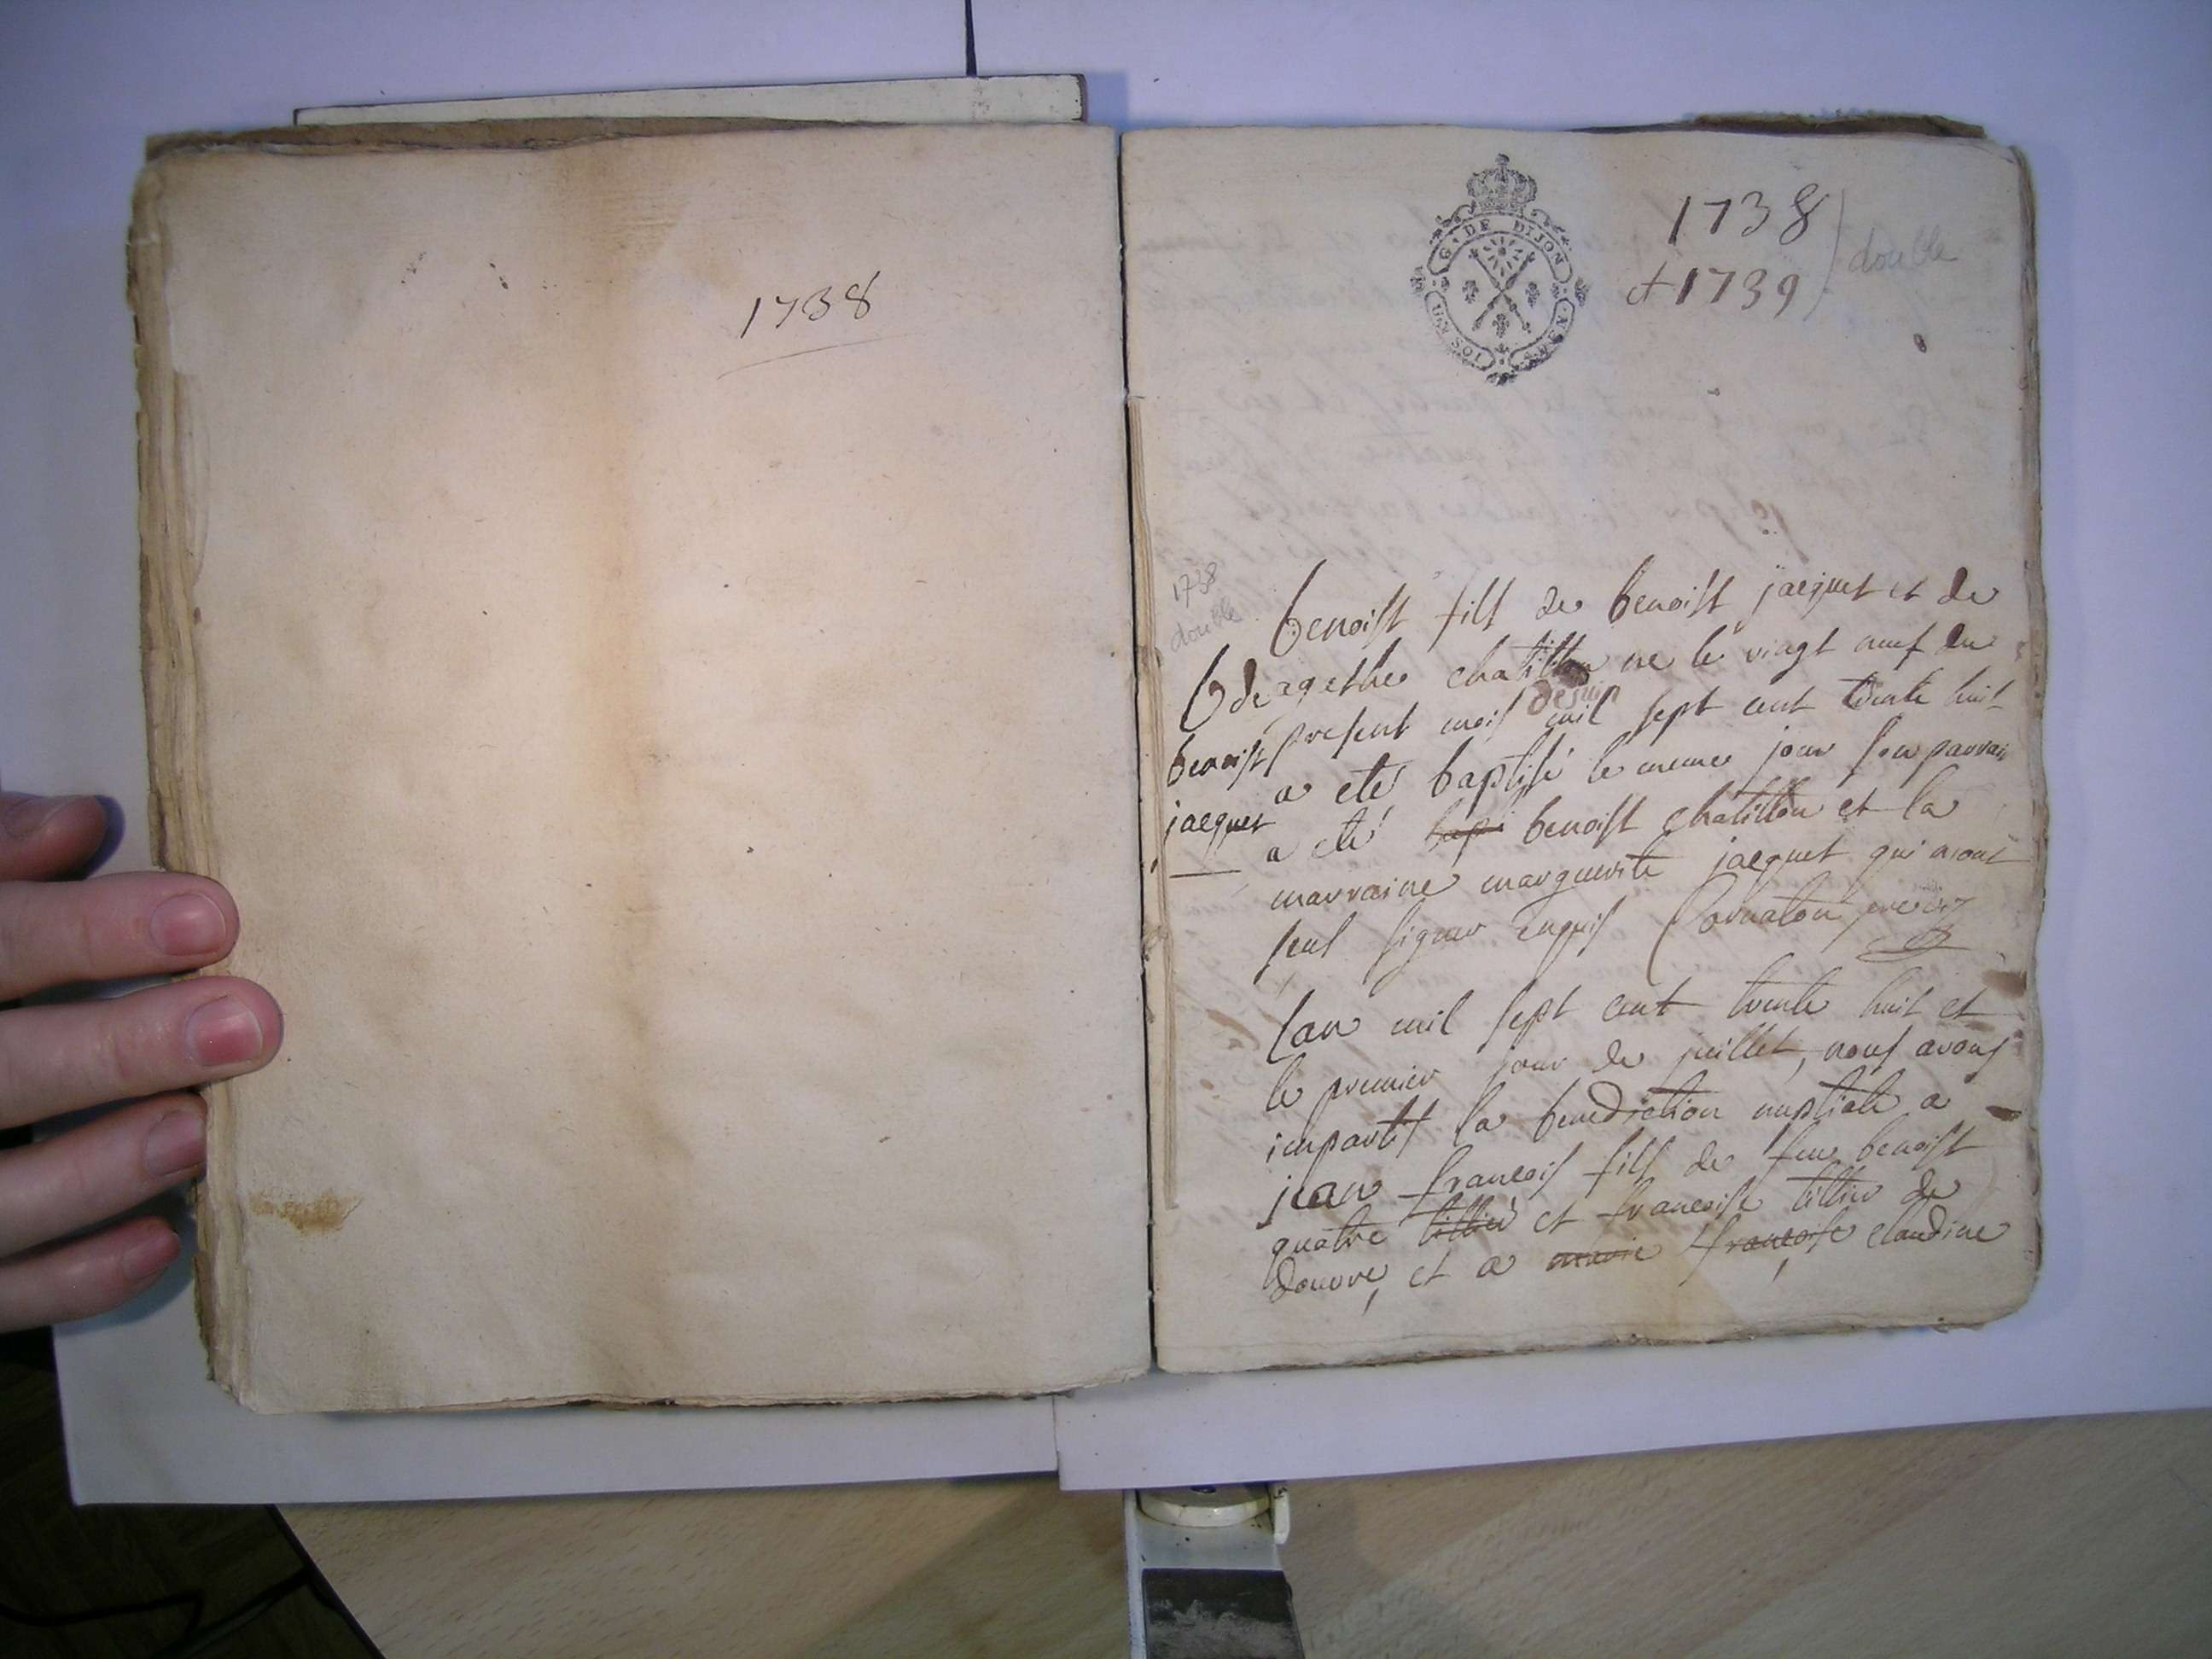 1738
G. DE DIJON
UN SOL
1738
et 1739
double
1738
double
B de
benoist
jacquet
benoist fils de benoist jacquet et de
agethe chatillon ne le vingt neuf du
present mois de juin mil sept cent trente huit
a eté baptisé le meme jour son parrain
a eté bapt benoist chatillon et la
marraine marguerite jacquet qui n'ont
seul signer enquis
lan mil sept cent trente huit et
le premier jour de juillet, nous avons
impartis la benediction nuptiale a
jean francois fils de feu benoist
quatre tillier et francoise tillier de
douvre, et a marie francoise claudine